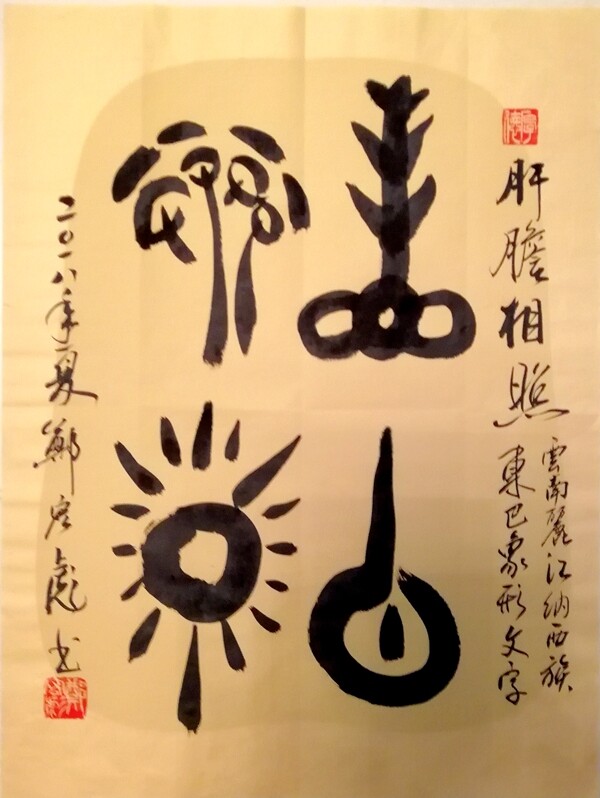 肝膽相照
雲南麗江納西族
東巴象形文字
二〇一八年夏鄭彪书